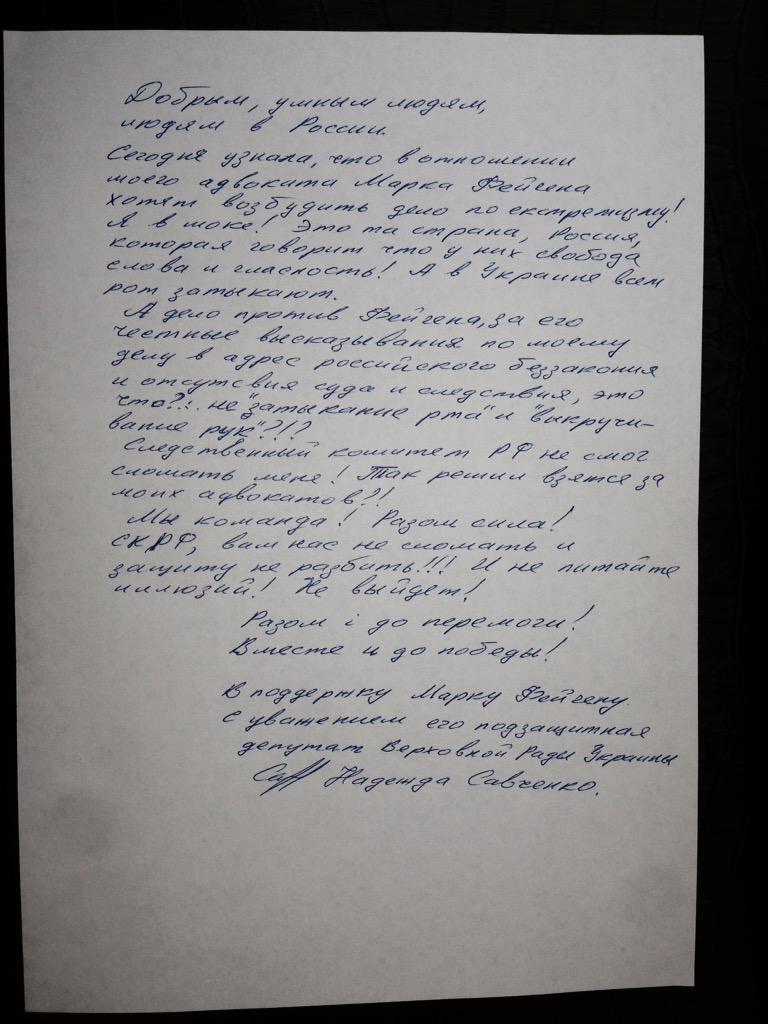 Добрым, умным людям,
людям в России.
Сегодня узнала, что в отношении
моего адвоката Марка Фейгена
хотят возбудить дело по екстремизму!
Я в шоке! Это та страна, Россия,
которая говорит что у них свобода
слова и гласность! А в Украине всем
рот затыкают.
А дело против Фейгена, за его
честные высказывания по моему
делу в адрес российского беззакония
и отсутсвия суда и следствия, это
что?!.. не "затыкание рта" и "выкручи-
вание рук"?!?
Следственный комитет РФ не смог
сломать меня! Так решил взятся за
моих адвокатов?!
Мы команда! Разом сила!
СКРФ, вам нас не сломать и
защиту не разбить!!! И не питайте
иллюзий! Не выйдет!
Разом і до перемоги!
Вместе и до победы!
В поддержку Марку Фейгену.
С уважением его подзащитная
депутат Верховной Рады Украины
Надежда Савченко.